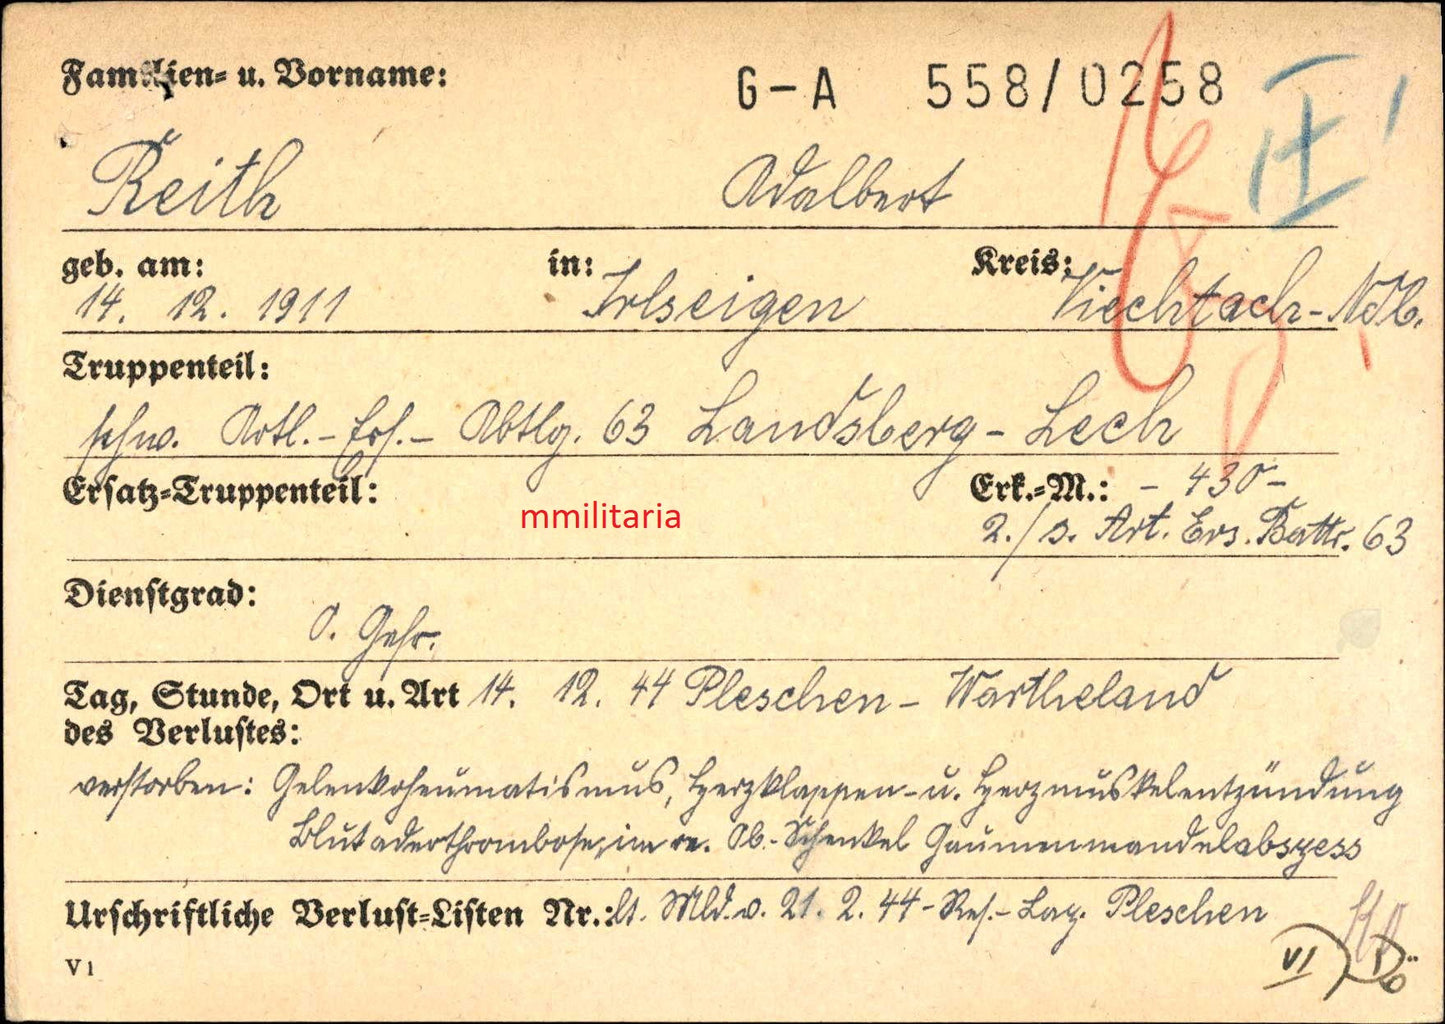 Familien= u. Vorname:
G-A 558/0258
II
Reith Adalbert
geb. am: in: Kreis:
14. 12. 1911 Irlseigen Viechtach-Ndb.
Truppenteil:
schw. Artl.-Ers.- Abtlg. 63 Landsberg - Lech
Ersatz=Truppenteil: Erk.=M.: - 430 -
mmilitaria
2./ s. Art. Ers. Battr. 63
Dienstgrad:
O. Gefr.
Tag, Stunde, Ort u. Art 14. 12. 44 Pleschen - Wartheland
des Verlustes:
verstorben: Gelenkrheumatismus, Herzklappen- u. Herzmuskelentzündung
Blutaderthrombose, im re. Ob.-Schenkel Gaumenmandelabszess
Urschriftliche Verlust=Listen Nr.: lt. Mld. v. 21. 2. 44 - Res.-Laz. Pleschen
V 1
VI